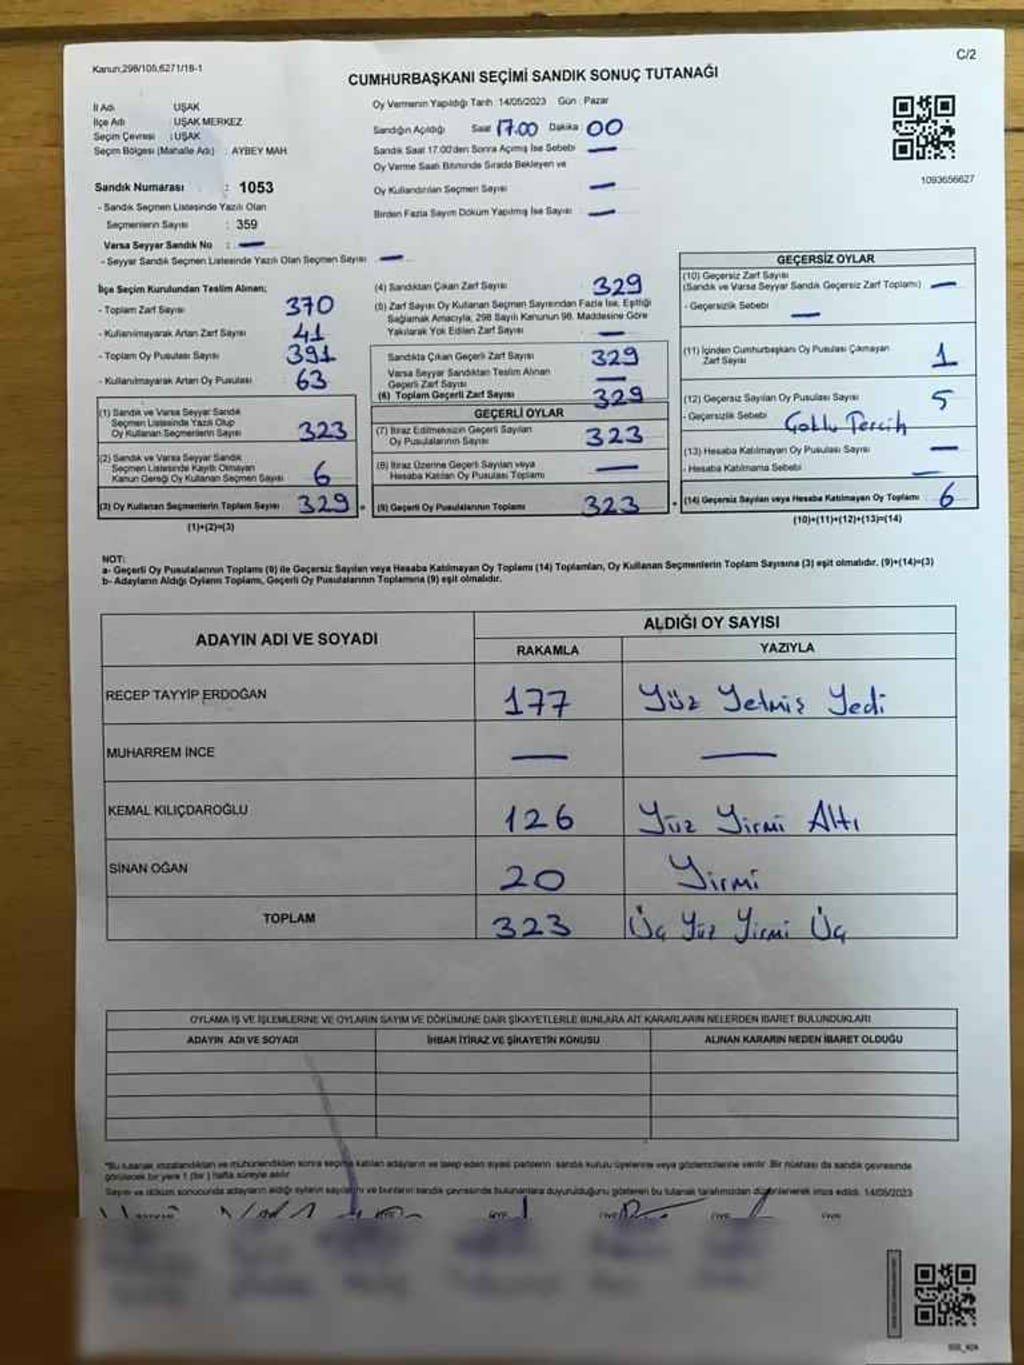 Kanun;298/105,6271/18-1
C/2
CUMHURBAŞKANI SEÇİMİ SANDIK SONUÇ TUTANAĞI
İl Adı UŞAK
İlçe Adı UŞAK MERKEZ
Seçim Çevresi : UŞAK
Seçim Bölgesi (Mahalle Adı) : AYBEY MAH
Sandık Numarası : 1053
- Sandık Seçmen Listesinde Yazılı Olan
Seçmenlerin Sayısı : 359
Varsa Seyyar Sandık No : —
- Seyyar Sandık Seçmen Listesinde Yazılı Olan Seçmen Sayısı —
Oy Vermenin Yapıldığı Tarih 14/05/2023 Gün : Pazar
Sandığın Açıldığı Saat 17.00 Dakika 00
Sandık Saat 17.00'den Sonra Açılmış İse Sebebi —
Oy Verme Saati Bitiminde Sırada Bekleyen ve
Oy Kullandırılan Seçmen Sayısı —
Birden Fazla Sayım Döküm Yapılmış İse Sayısı : —
1093656627
İlçe Seçim Kurulundan Teslim Alınan;
- Toplam Zarf Sayısı 370
- Kullanılmayarak Artan Zarf Sayısı 41
- Toplam Oy Pusulası Sayısı 391
- Kullanılmayarak Artan Oy Pusulası 63
(1) Sandık ve Varsa Seyyar Sandık
Seçmen Listesinde Yazılı Olup
Oy Kullanan Seçmenlerin Sayısı 323
(2) Sandık ve Varsa Seyyar Sandık
Seçmen Listesinde Kayıtlı Olmayan
Kanun Gereği Oy Kullanan Seçmen Sayısı 6
(3) Oy Kullanan Seçmenlerin Toplam Sayısı 329
(1)+(2)=(3)
(4) Sandıktan Çıkan Zarf Sayısı 329
(5) Zarf Sayısı Oy Kullanan Seçmen Sayısından Fazla İse, Eşitliği
Sağlamak Amacıyla, 298 Sayılı Kanunun 98. Maddesine Göre
Yakılarak Yok Edilen Zarf Sayısı —
Sandıkta Çıkan Geçerli Zarf Sayısı 329
Varsa Seyyar Sandıktan Teslim Alınan
Geçerli Zarf Sayısı —
(6) Toplam Geçerli Zarf Sayısı 329
GEÇERLİ OYLAR
(7) İtiraz Edilmeksizin Geçerli Sayılan
Oy Pusulalarının Sayısı 323
(8) İtiraz Üzerine Geçerli Sayılan veya
Hesaba Katılan Oy Pusulası Toplamı —
(9) Geçerli Oy Pusulalarının Toplamı 323
GEÇERSİZ OYLAR
(10) Geçersiz Zarf Sayısı
(Sandık ve Varsa Seyyar Sandık Geçersiz Zarf Toplamı) —
- Geçersizlik Sebebi —
(11) İçinden Cumhurbaşkanı Oy Pusulası Çıkmayan
Zarf Sayısı 1
(12) Geçersiz Sayılan Oy Pusulası Sayısı 5
- Geçersizlik Sebebi Çoklu Tercih
(13) Hesaba Katılmayan Oy Pusulası Sayısı —
- Hesaba Katılmama Sebebi —
(14) Geçersiz Sayılan veya Hesaba Katılmayan Oy Toplamı 6
(10)+(11)+(12)+(13)=(14)
NOT:
a- Geçerli Oy Pusulalarının Toplamı (9) ile Geçersiz Sayılan veya Hesaba Katılmayan Oy Toplamı (14) Toplamları, Oy Kullanan Seçmenlerin Toplam Sayısına (3) eşit olmalıdır. (9)+(14)=(3)
b- Adayların Aldığı Oyların Toplamı, Geçerli Oy Pusulalarının Toplamına (9) eşit olmalıdır.
ADAYIN ADI VE SOYADI
ALDIĞI OY SAYISI
RAKAMLA YAZIYLA
RECEP TAYYİP ERDOĞAN 177 Yüz Yetmiş Yedi
MUHARREM İNCE — —
KEMAL KILIÇDAROĞLU 126 Yüz Yirmi Altı
SİNAN OĞAN 20 Yirmi
TOPLAM 323 Üç Yüz Yirmi Üç
OYLAMA İŞ VE İŞLEMLERİNE VE OYLARIN SAYIM VE DÖKÜMÜNE DAİR ŞİKAYETLERLE BUNLARA AİT KARARLARIN NELERDEN İBARET BULUNDUKLARI
ADAYIN ADI VE SOYADI İHBAR İTİRAZ VE ŞİKAYETİN KONUSU ALINAN KARARIN NEDEN İBARET OLDUĞU
*Bu tutanak imzalandıktan ve mühürlendikten sonra seçime katılan adayların ve talep eden siyasi partilerin sandık kurulu üyelerine veya gözlemcilerine verilir. Bir nüshası da sandık çevresinde
görülecek bir yere 1 (bir) hafta süreyle asılır.
Sayım ve döküm sonucunda adayların aldığı oyların sayılarını ve bunların sandık çevresinde bulunanlara duyurulduğunu gösteren bu tutanak tarafımızdan düzenlenerek imza edildi. 14/05/2023